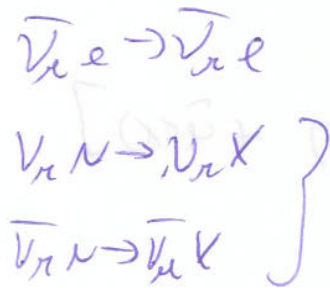 ν̄_μ e → ν̄_μ e
ν_μ N → ν_μ X
ν̄_μ N → ν̄_μ X }